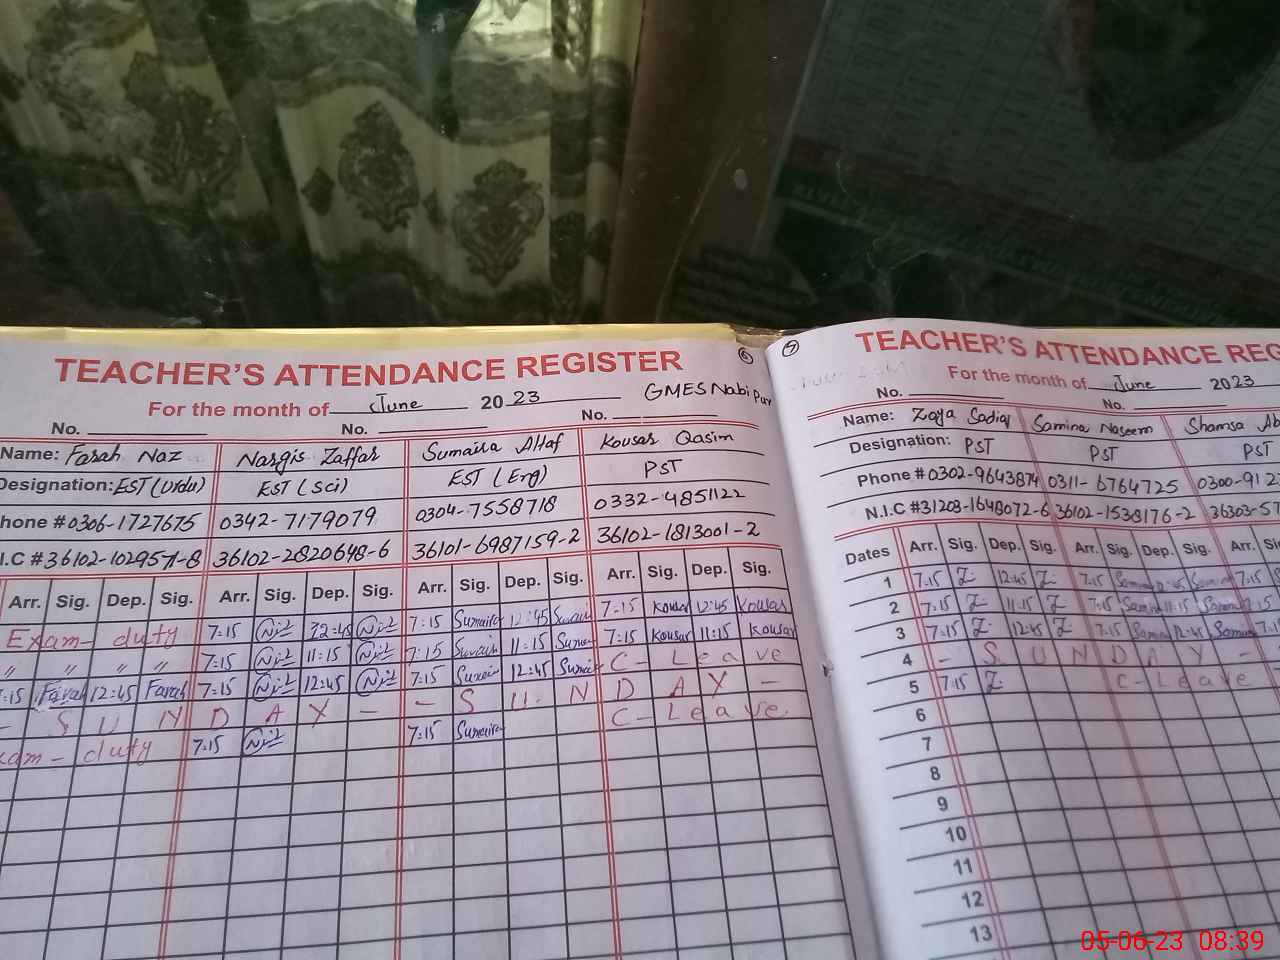 TEACHER'S ATTENDANCE REGISTER 6
For the month of June 2023 GMES Nabi Pur
No. No. No.
Name: Farah Naz Nargis Zaffar Sumaira Altaf Kousar Qasim
Designation: EST (Urdu) EST (Sci) EST (Eng) PST
hone # 0306-1727675 0342-7179079 0304-7558718 0332-4851122
.I.C # 36102-1029571-8 36102-2820648-6 36101-6987159-2 36102-1813001-2
Arr. Sig. Dep. Sig. Arr. Sig. Dep. Sig. Arr. Sig. Dep. Sig. Arr. Sig. Dep. Sig.
Exam- duty 7:15 12:45 7:15 Sumaira 12:45 7:15 Kousar 12:45 Kousar
" " " " 7:15 11:15 7:15 11:15 7:15 Kousar 11:15 Kousar
7:15 Farah 12:45 Farah 7:15 12:45 7:15 12:45 C- Leave
- S U N D A Y - - S U N D A Y -
xam- duty 7:15 7:15 Sumaira C- Leave
7 TEACHER'S ATTENDANCE REG
For the month of June 2023
No. No.
Name: Zoya Sadiq Samina Naseem Shamsa Ab
Designation: PST PST PST
Phone # 0302-9643874 0311-6764725 0300-912
N.I.C # 31203-1648072-6 36102-1538176-2 36303-57
Dates Arr. Sig. Dep. Sig. Arr. Sig. Dep. Sig. Arr. Si
1 7:15 Z 12:45 Z 7:15 Samina 12:45 Samina 7:15
2 7:15 Z 11:15 Z 7:15 Samina 11:15 Samina 7:15
3 7:15 Z 12:45 Z 7:15 Samina 12:45 Samina 7:15
4 - S U N D A Y -
5 7:15 Z C- Leave
6
7
8
9
10
11
12
13
05-06-23 08:39